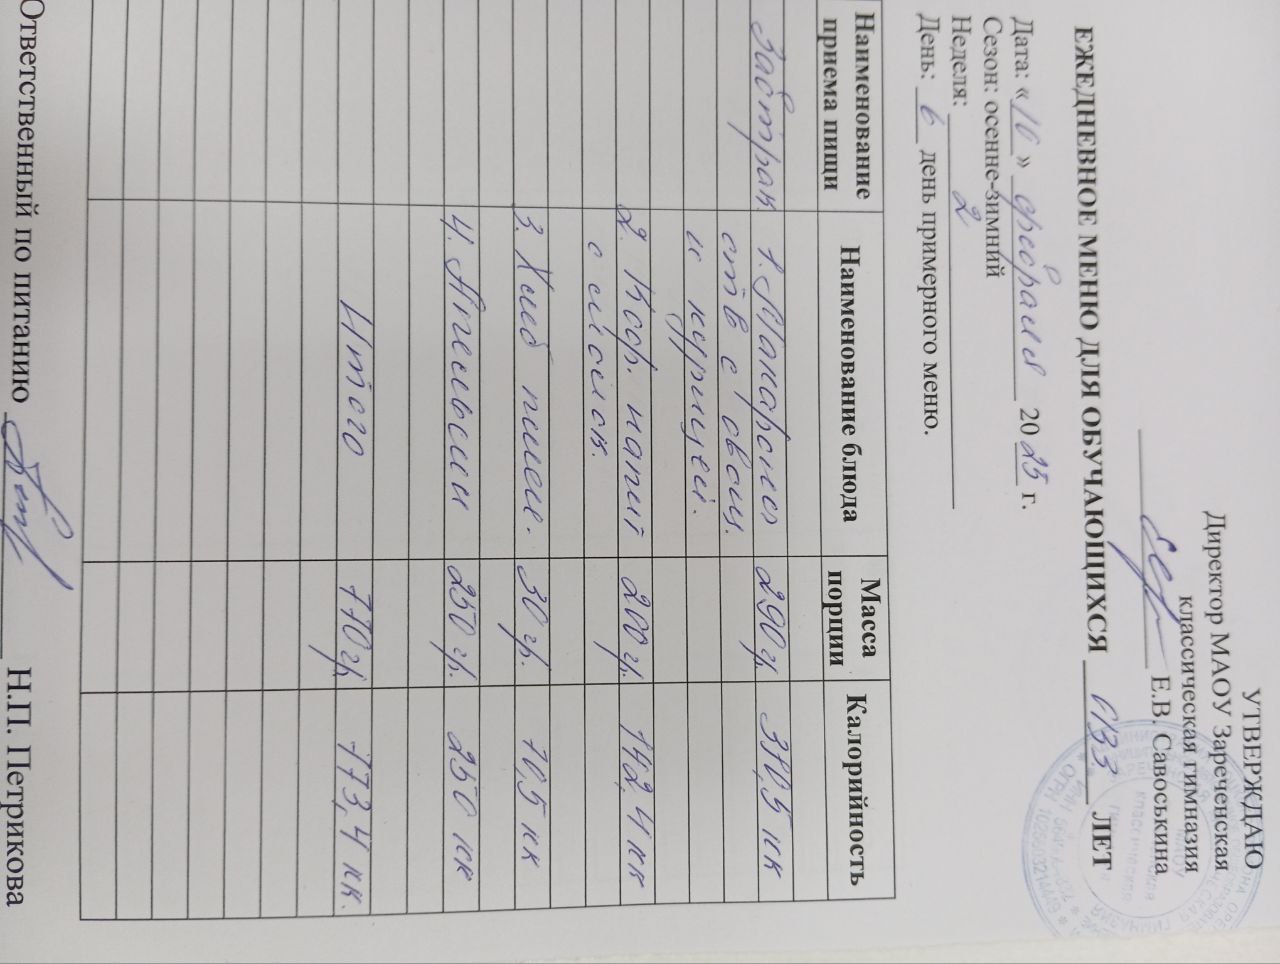 УТВЕРЖДАЮ
Директор МАОУ Зареченская
классическая гимназия
Е.В. Савоськина
ЕЖЕДНЕВНОЕ МЕНЮ ДЛЯ ОБУЧАЮЩИХСЯ ОВЗ ЛЕТ
Дата: «10» февраля 2025 г.
Сезон: осенне-зимний
Неделя: 2
День: 6 день примерного меню.
Наименование приема пищи Наименование блюда Масса порции Калорийность
Завтрак 1. Макароны 290 гр. 370,5 кк
отв с овощ.
и курицей.
2. Коф. напит 200 гр. 142,4 кк
с молок.
3. Хлеб пшен. 30 гр. 10,5 кк
4. Апельсин 250 гр. 250 кк
Итого 770 гр. 773,4 кк.
Ответственный по питанию Н.П. Петрикова